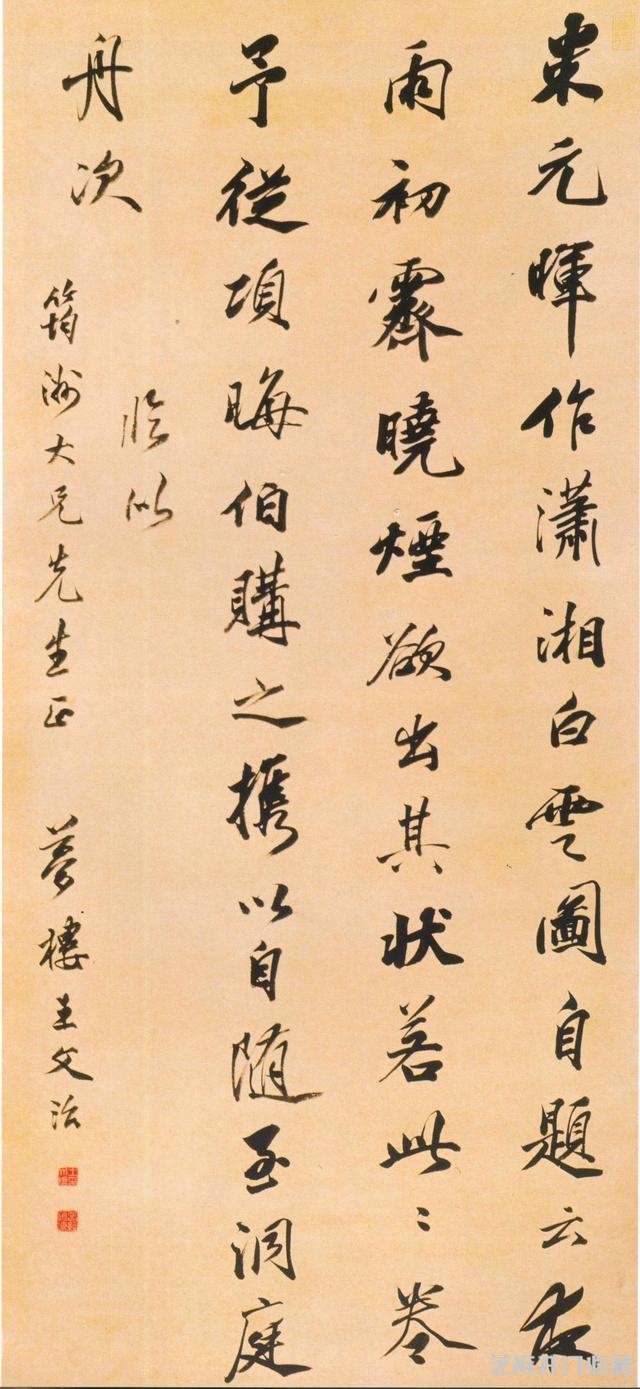 米元暉作瀟湘白雲圖自題云夜
雨初霽曉煙欲出其狀若此〻卷
予從項晦伯購之携以自随至洞庭
舟次
臨以
筠洲大兄先生正 夢樓王文治
芝麻开门收藏